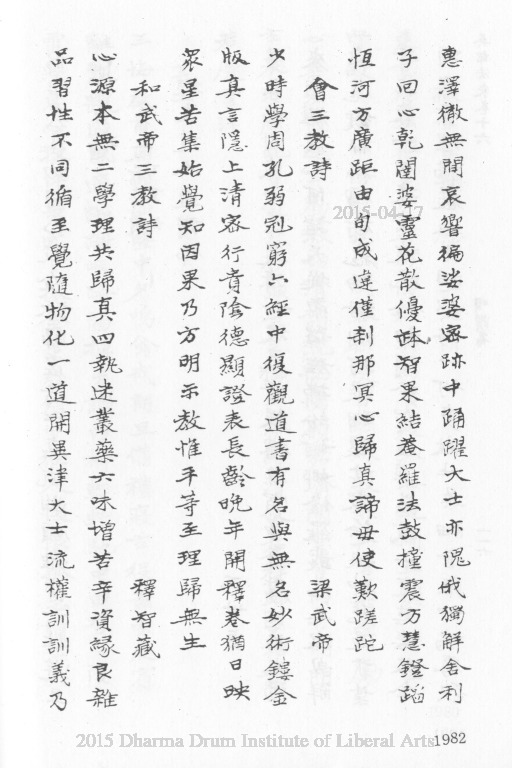 惠澤徹無間哀響徧娑婆宻跡中踊躍大士亦隗俄獨解舍利
子回心乾闥婆靈花散優鉢智果結菴羅法鼓撞震方慧鐙蹈
恆河方廣距由旬成達僅刹那冥心歸真諦毋使歎蹉跎
會三教詩 梁武帝
少時學周孔弱冠窮六經中復觀道書有名與無名妙術鏤金
版真言隱上清宻行貴陰德顯證表長齡晚年開釋卷猶日映
眾星苦集始覺知因果乃方明示教惟平等至理歸無生
和武帝三教詩 釋智藏
心源本無二學理共歸真四執迷叢藥六味增苦辛資緣良雜
品習性不同循至覺隨物化一道開異津大士流權訓訓義乃
2015-04-17
1982
2015 Dharma Drum Institute of Liberal Arts